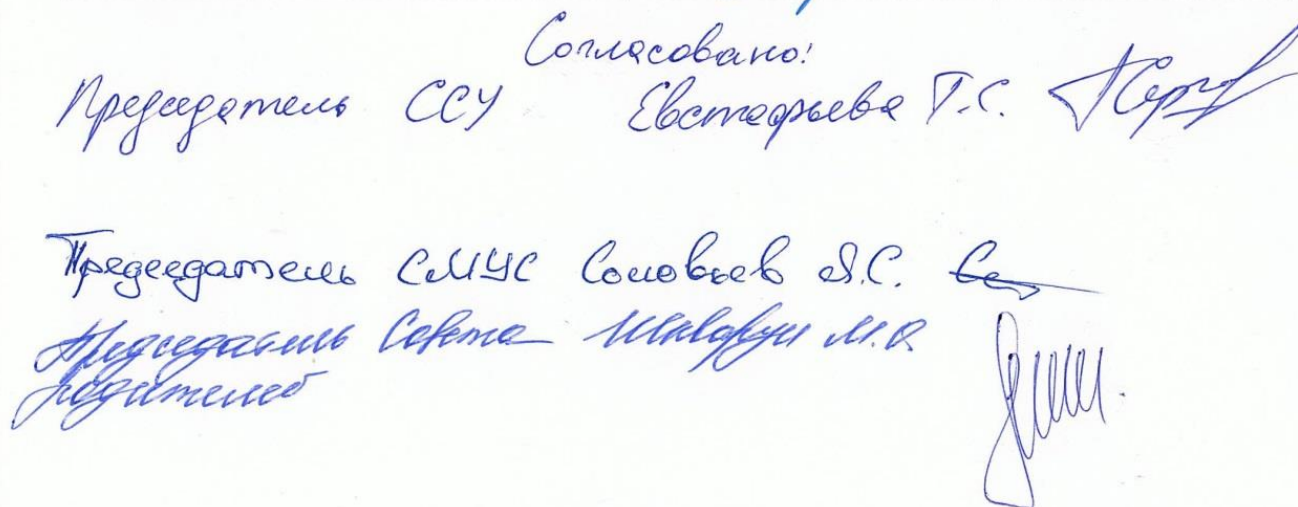 Согласовано!
Председатель ССУ Евстафьева Т.С.
Председатель СМУС Соловьев Я.С.
Председатель Совета М.А.
родителей